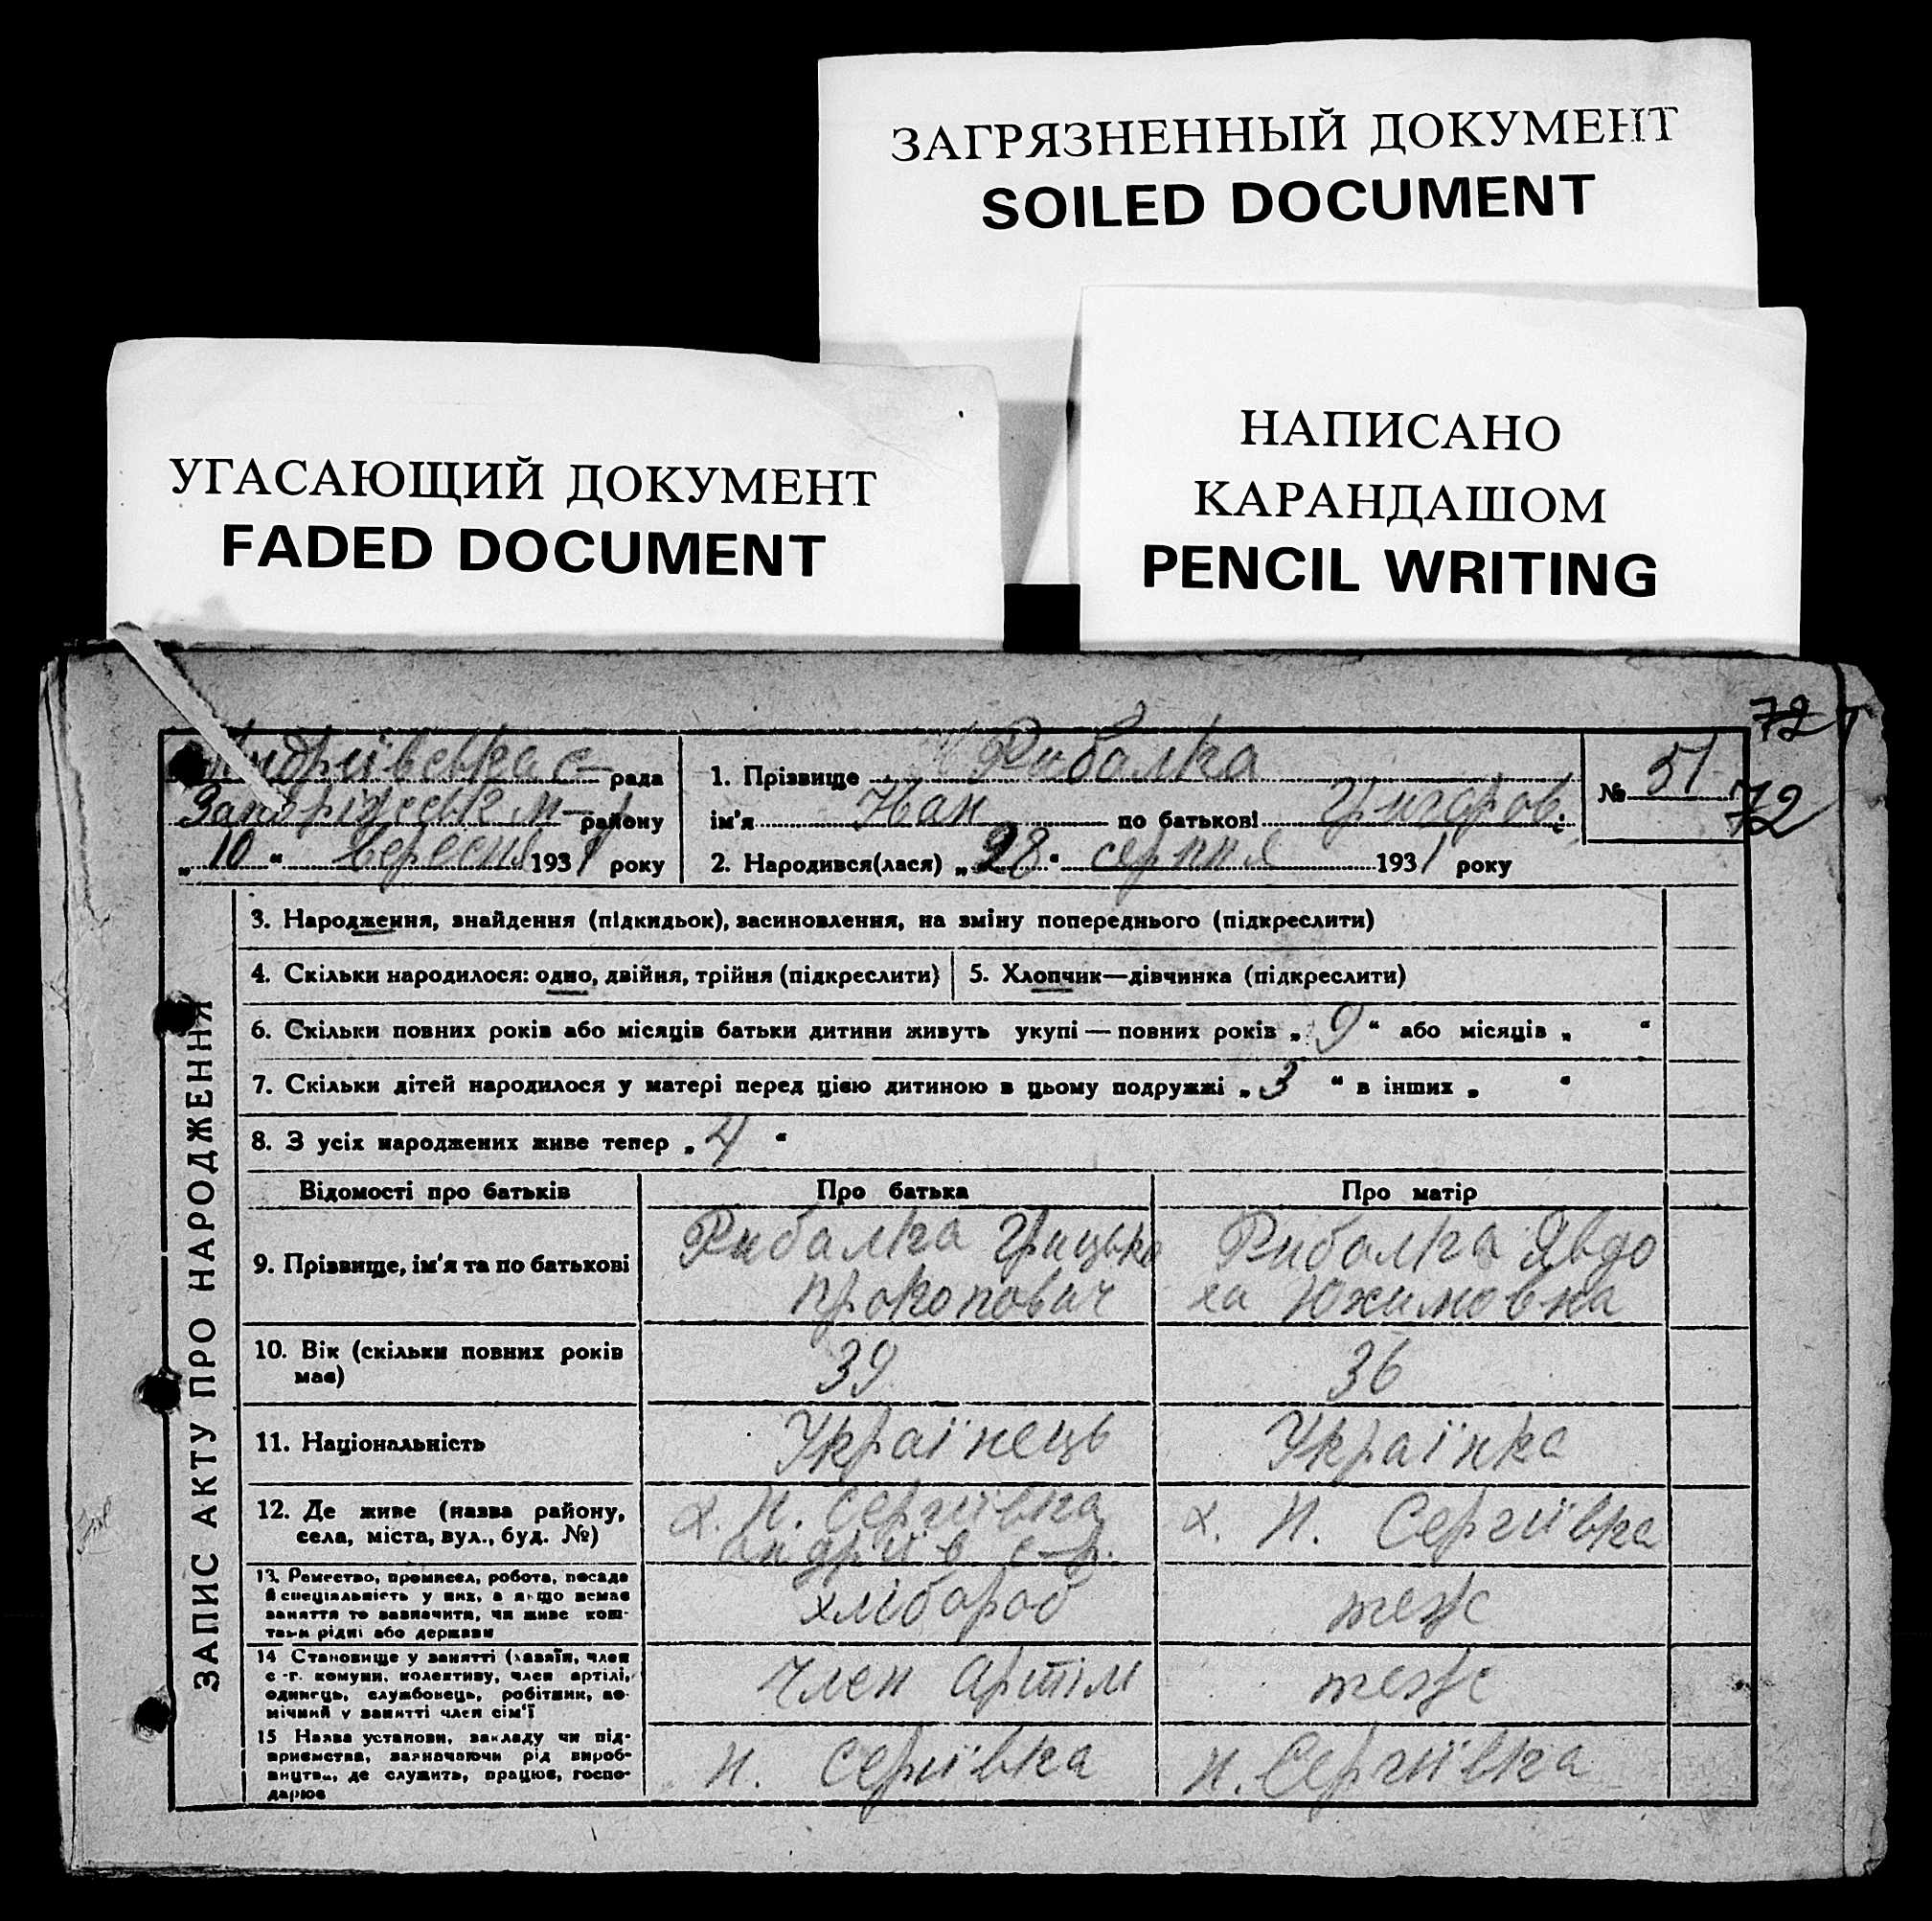 ЗАГРЯЗНЕННЫЙ ДОКУМЕНТ
SOILED DOCUMENT
УГАСАЮЩИЙ ДОКУМЕНТ
FADED DOCUMENT
НАПИСАНО
КАРАНДАШОМ
PENCIL WRITING
72
72
Андріївська с- рада
Запоріжськ м- району
„ 10 “ Вересня 1931 року
1. Прізвище Рибалка
ім'я Іван по батькові Григоров.
2. Народився(лася) „ 28 “ серпня 1931 року
№ 51
ЗАПИС АКТУ ПРО НАРОДЖЕННЯ
3. Народження, знайдення (підкидьок), засиновлення, на зміну попереднього (підкреслити)
4. Скільки народилося: одно, двійня, трійня (підкреслити)
5. Хлопчик—дівчинка (підкреслити)
6. Скільки повних років або місяців батьки дитини живуть укупі — повних років „ 9 “ або місяців „ “
7. Скільки дітей народилося у матері перед цією дитиною в цьому подружжі „ 3 “ в інших „ “
8. З усіх народжених живе тепер „ 4 “
Відомості про батьків
Про батька
Про матір
9. Прізвище, ім'я та по батькові
Рибалка Грицько
Прокопович
Рибалка Явдо
ха Юхимовна
10. Вік (скільки повних років
має)
39
36
11. Національність
Українець
Українка
12. Де живе (назва району,
села, міста, вул., буд. №)
х. Н. Сергіївка
Андріїв с-р.
х. Н. Сергіївка
13. Ремество, промисел, робота, посада
й спеціальність у них, а якщо немає
заняття то зазначити, чи живе кош-
тами рідні або держави
хлібороб
теж
14 Становище у занятті (хазяїн, член
с-г. комуни, колективу, член артілі,
одинець, службовець, робітник, по-
мічний у занятті член сім'ї
член артіли
теж
15 Назва установи, закладу чи під-
приємства, зазначаючи рід вироб-
ництва, де служить, працює, госпо-
дарює
Н. Сергіївка
Н. Сергіївка